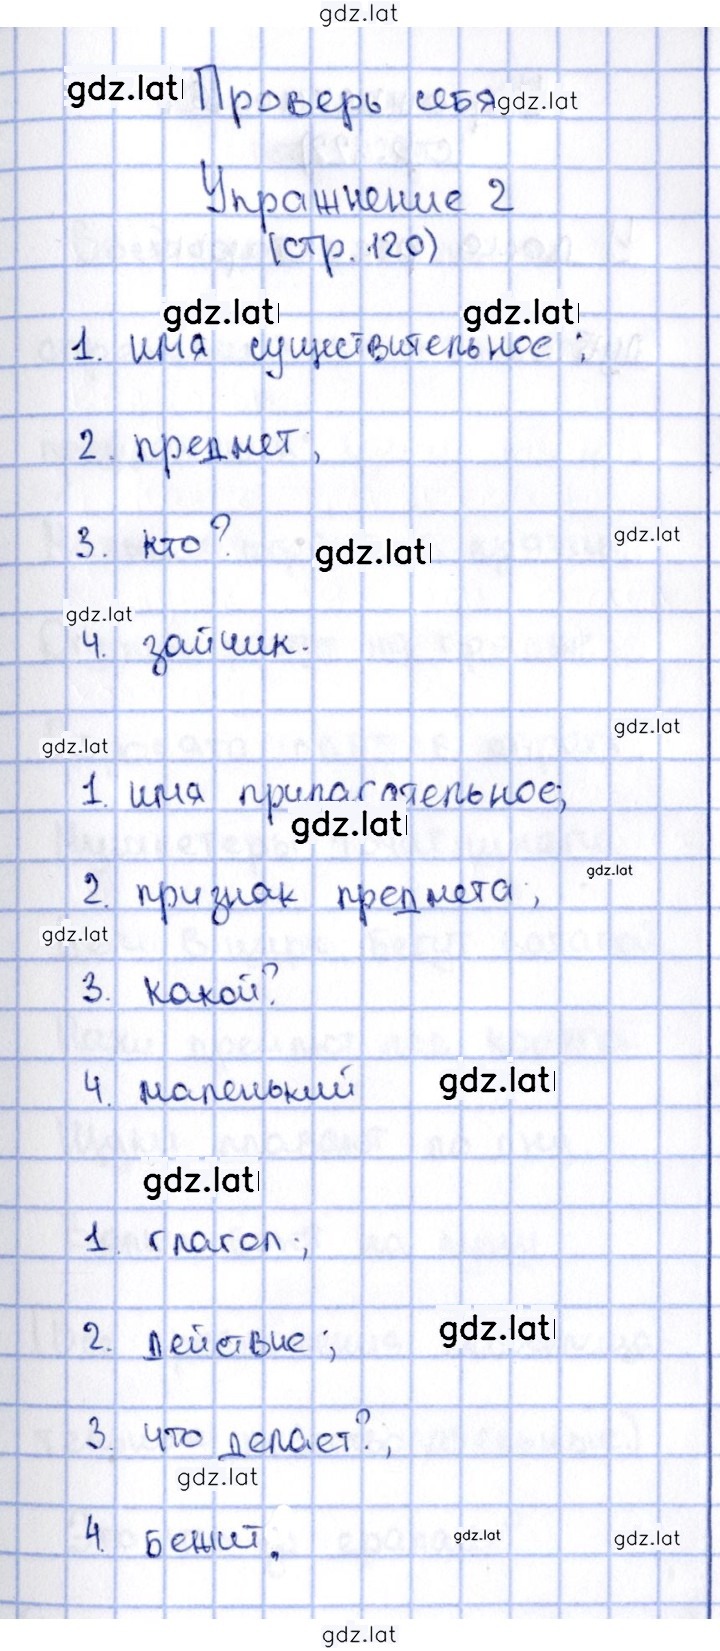 gdz.lat
gdz.lat Проверь себя gdz.lat
Упражнение 2
(стр. 120)
gdz.lat gdz.lat
1. имя существительное;
2. предмет;
3. кто? gdz.lat
gdz.lat
gdz.lat
4. зайчик.
gdz.lat
gdz.lat
1. имя прилагательное;
gdz.lat
gdz.lat
2. признак предмета;
gdz.lat
3. какой?
4. маленький gdz.lat
gdz.lat
1. глагол;
2. действие; gdz.lat
3. что делает?;
gdz.lat
4. бежит. gdz.lat gdz.lat
gdz.lat